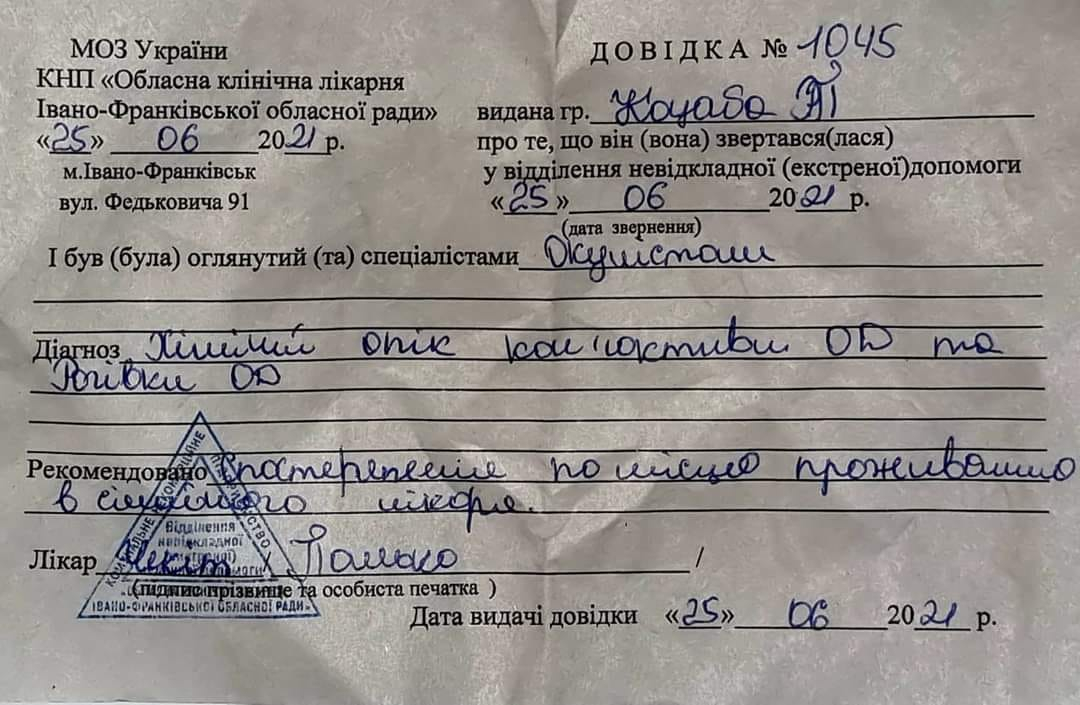 МОЗ України
КНП «Обласна клінічна лікарня
Івано-Франківської обласної ради»
«25» 06 2021 р.
м.Івано-Франківськ
вул. Федьковича 91
ДОВІДКА № 1045
видана гр. Коцаба
про те, що він (вона) звертався(лася)
у відділення невідкладної (екстреної)допомоги
«25» 06 2021 р.
(дата звернення)
І був (була) оглянутий (та) спеціалістами Окулістом
Діагноз Хімічний опік кон'юктиви OD та
Рогівки OD
Рекомендовано Спостереження по місцю проживання
в сімейного лікаря.
Лікар
(підпис прізвище та особиста печатка )
КОМУНАЛЬНЕ НЕКОМЕРЦІЙНЕ ПІДПРИЄМСТВО
Відділення
невідкладної
(екстреної)
допомоги
ІВАНО-ФРАНКІВСЬКОЇ ОБЛАСНОЇ РАДИ»
Дата видачі довідки «25» 06 2021 р.